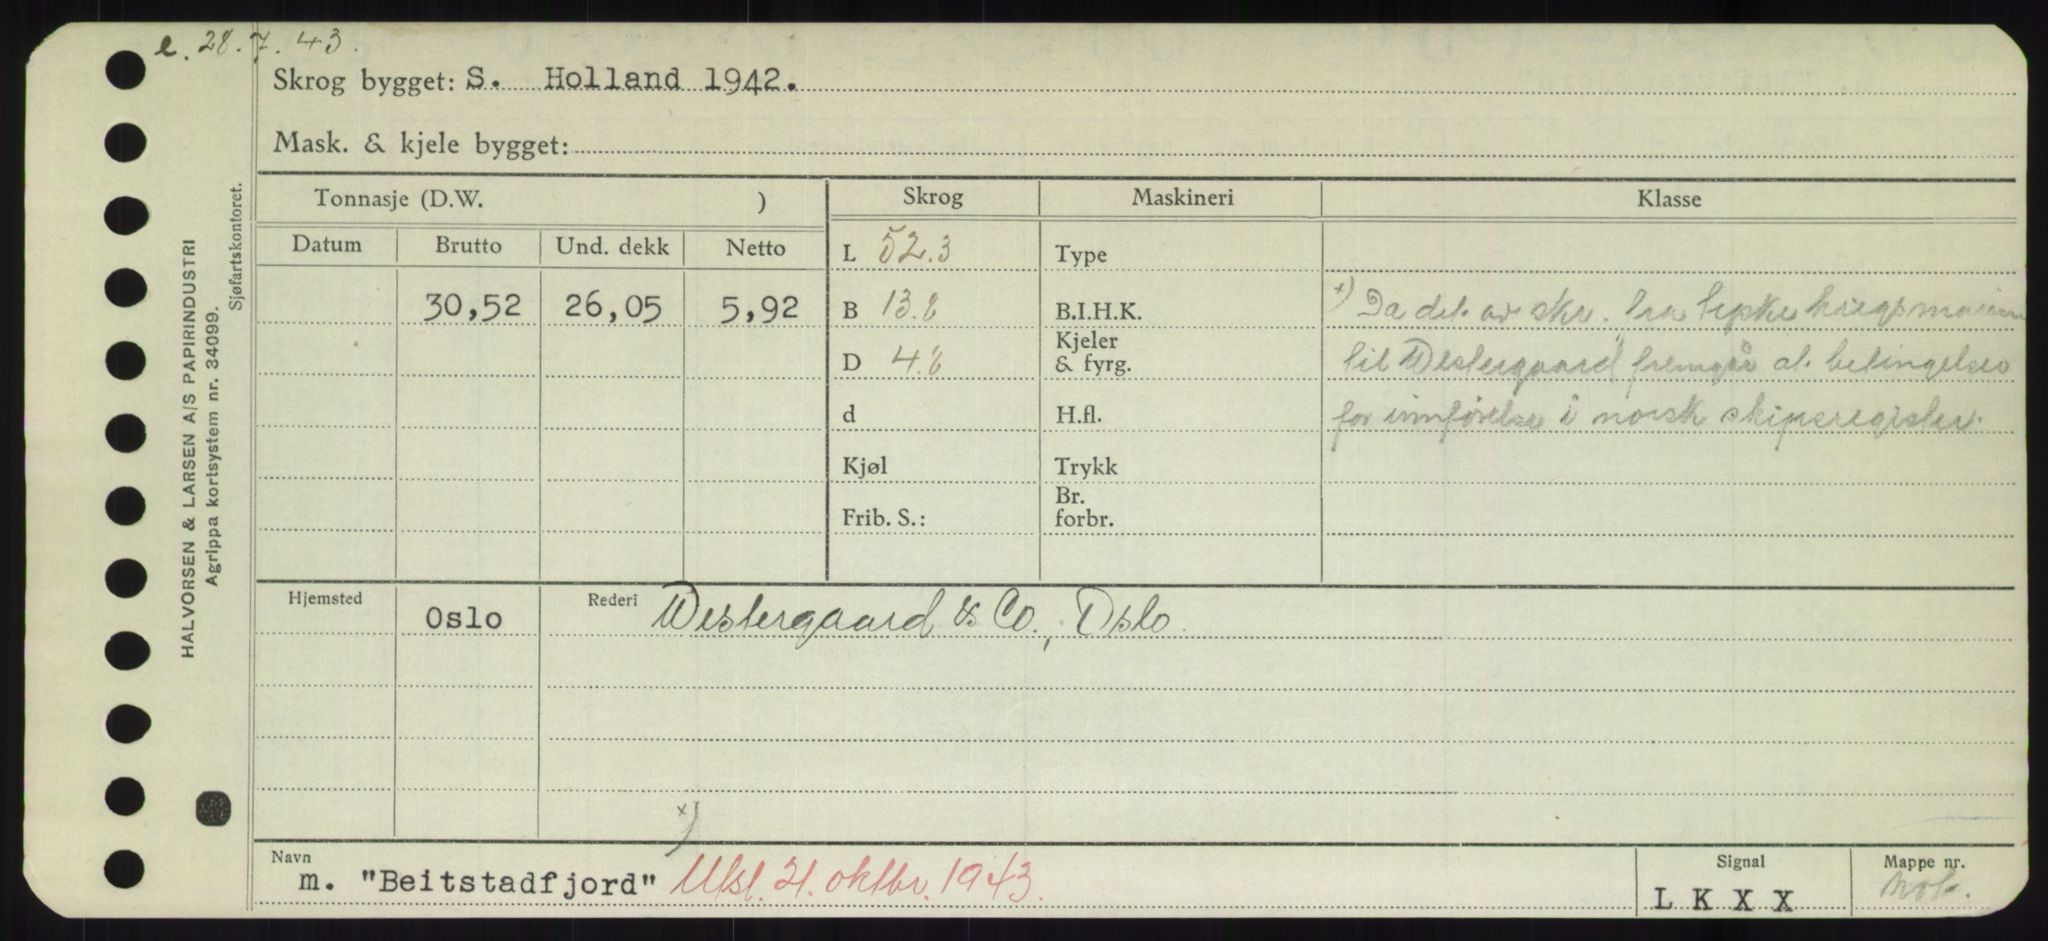 e. 28.7.43.
Skrog bygget: S. Holland 1942.
Mask. & kjele bygget:
Tonnasje (D.W. )
Skrog
Maskineri
Klasse
Datum
Brutto
Und. dekk
Netto
30,52
26,05
5,92
L 52.3
B 13.8
D 4.8
d
Kjøl
Frib. S.:
Type
B.I.H.K.
Kjeler
& fyrg.
H.fl.
Trykk
Br.
forbr.
x) Da det av skr. fra tyske
til Westergaard fremgår at betingelser
for innførelse i norsk skipsregister.
Hjemsted
Oslo
Rederi
Westergaard & Co., Oslo
x)
Navn
m. "Beitstadfjord" Utsl. 21. oktbr. 1943.
Signal
L K X X
Mappe nr.
HALVORSEN & LARSEN A/S PAPIRINDUSTRI
Agrippa kortsystem nr. 34099.
Sjøfartskontoret.